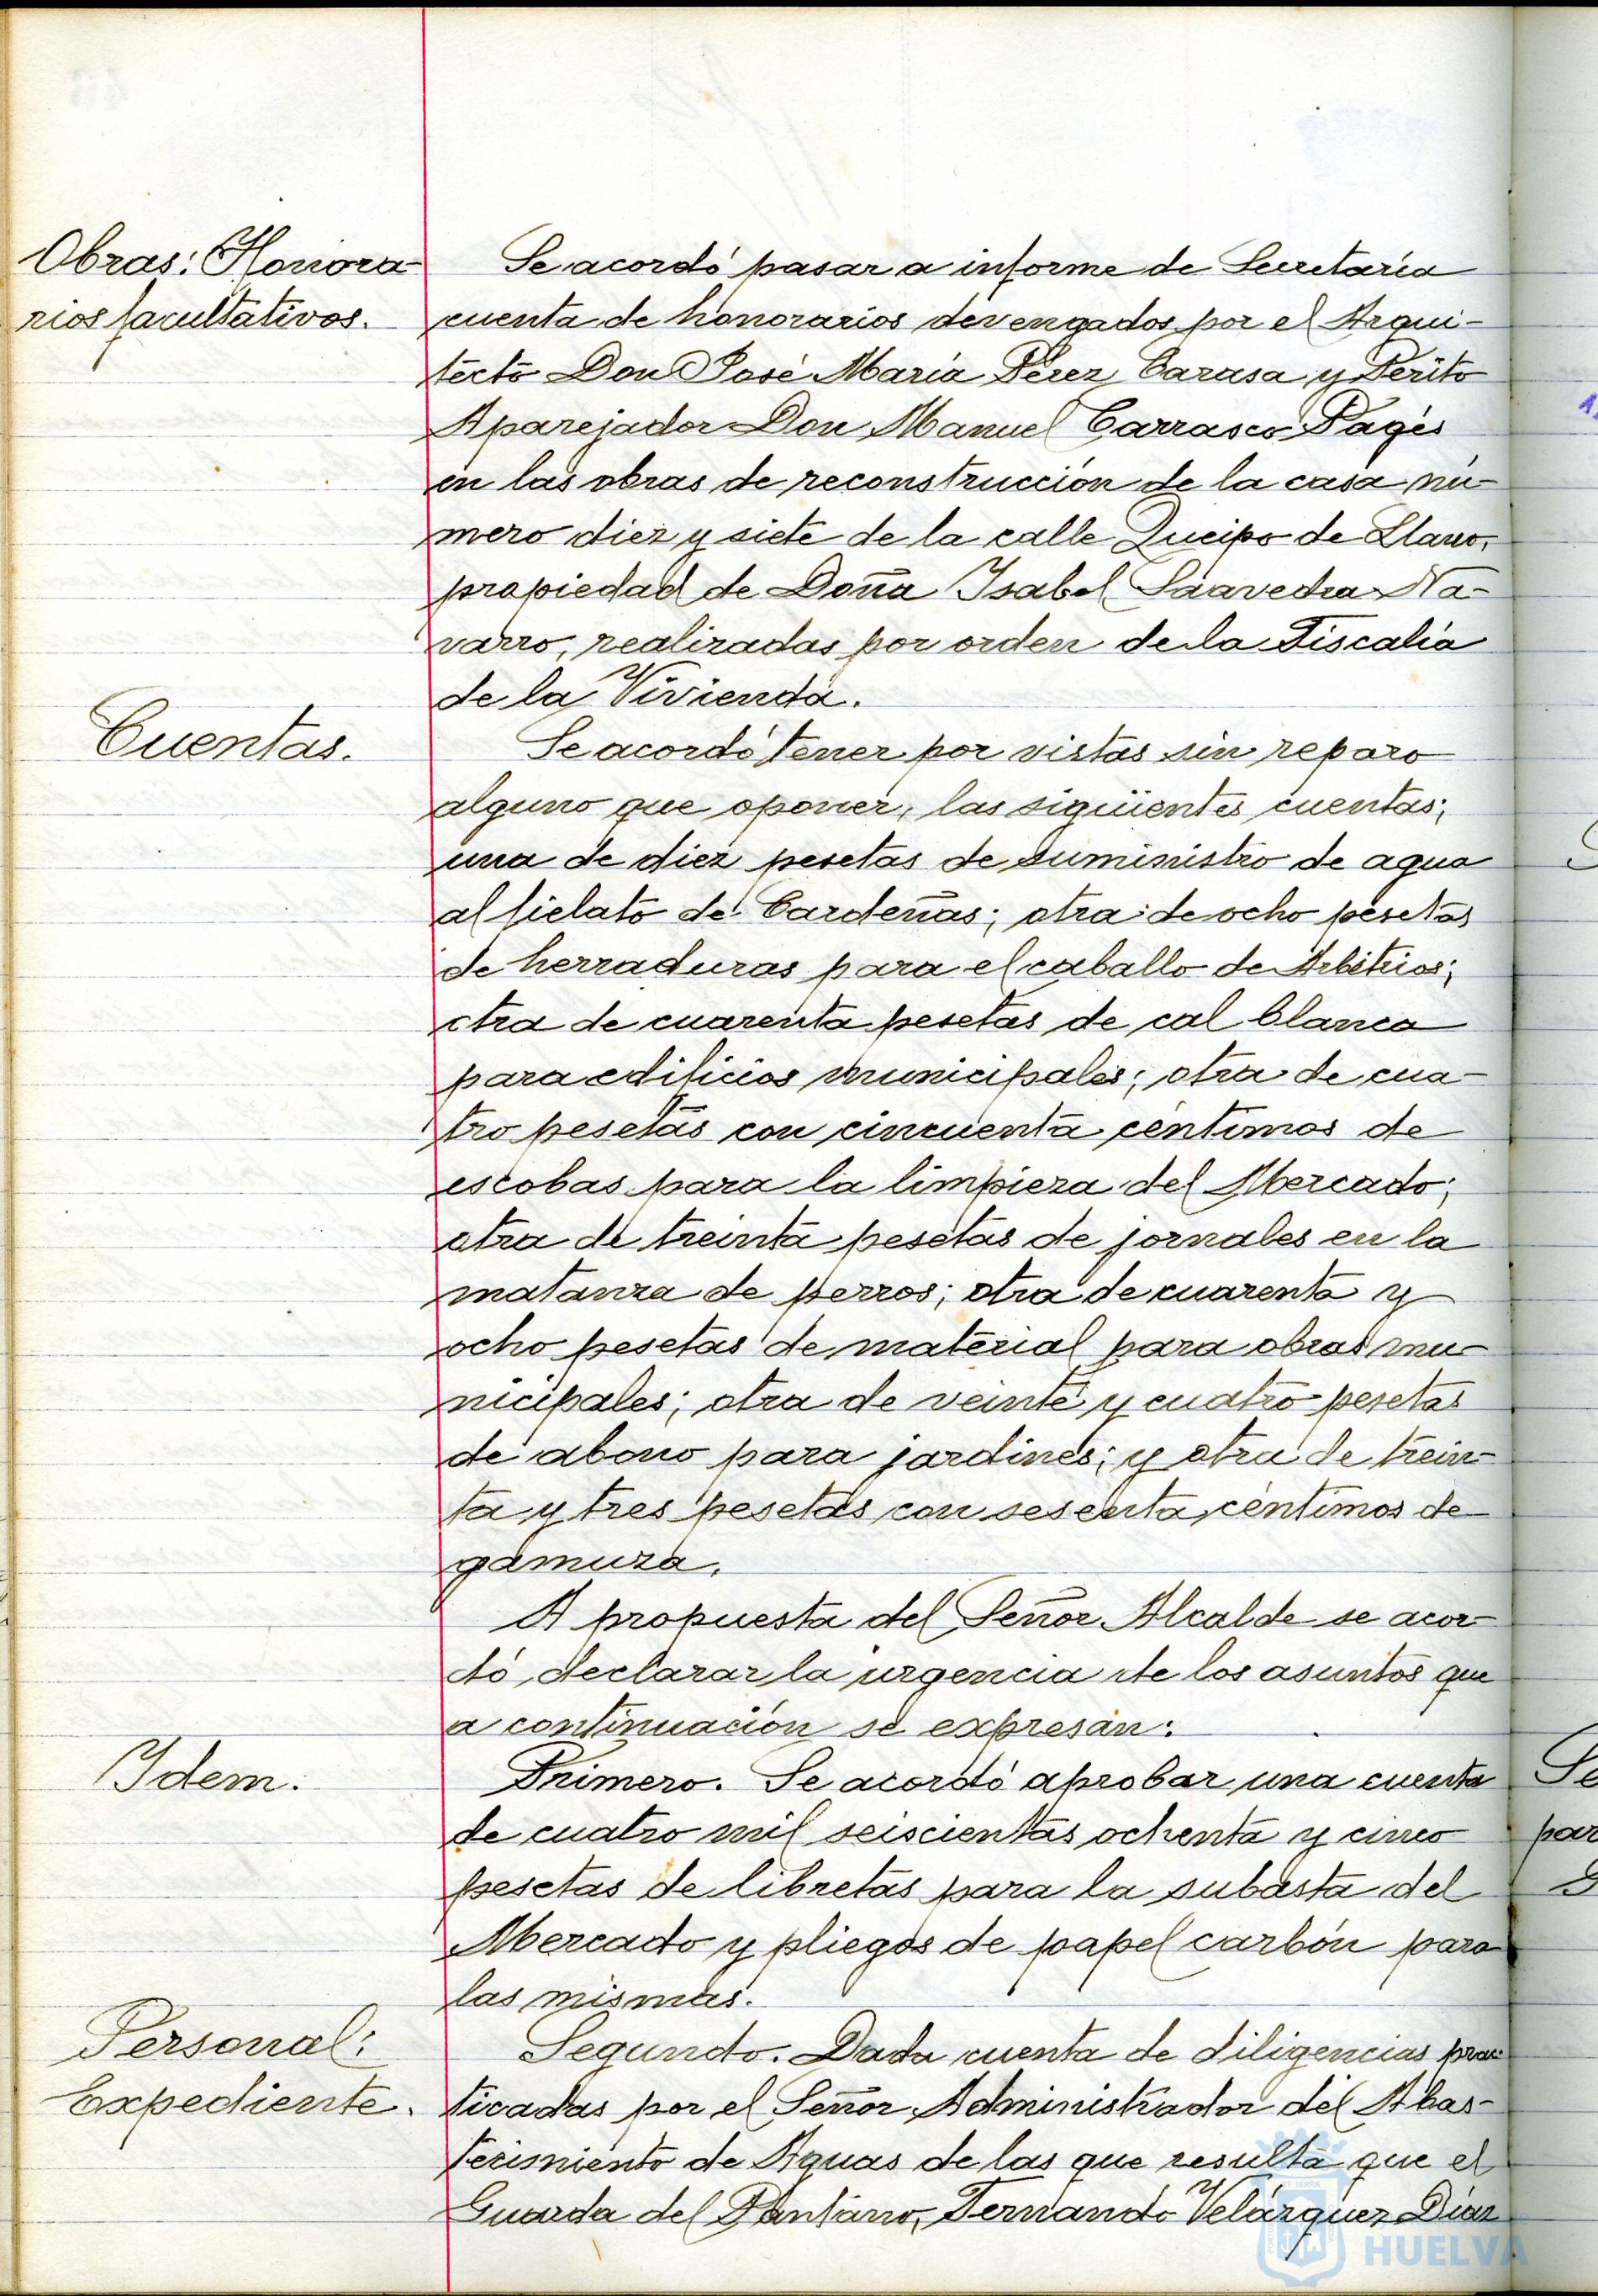 Obras: Honora
rios facultativos.
Se acordó pasar a informe de Secretaría
cuenta de honorarios devengados por el Arqui-
tecto Don José María Pérez Carasa y Perito
Aparejador Don Manuel Carrasco Pagés
en las obras de reconstrucción de la casa nú-
mero diez y siete de la calle Queipo de Llano,
propiedad de Doña Isabel Saavedra Na-
varro, realizadas por orden de la Fiscalía
de la Vivienda.
Cuentas.
Se acordó tener por vistas sin reparo
alguno que oponer, las siguientes cuentas;
una de diez pesetas de suministro de agua
al fielato de Cardeñas; otra de ocho pesetas
de herraduras para el caballo de Arbitrios;
otra de cuarenta pesetas de cal blanca
para edificios municipales; otra de cua-
tro pesetas con cincuenta céntimos de
escobas para la limpieza del Mercado;
otra de treinta pesetas de jornales en la
matanza de perros; otra de cuarenta y
ocho pesetas de material para obras mu-
nicipales; otra de veinte y cuatro pesetas
de abono para jardines; y otra de trein-
ta y tres pesetas con sesenta céntimos de
gamuza.
A propuesta del Señor Alcalde se acor-
dó declarar la urgencia de los asuntos que
a continuación se expresan:
Idem.
Primero. Se acordó aprobar una cuenta
de cuatro mil seiscientas ochenta y cinco
pesetas de libretas para la subasta del
Mercado y pliegos de papel carbón para
las mismas.
Personal:
Expediente.
Segundo. Dada cuenta de diligencias prac
ticadas por el Señor Administrador del Abas-
tecimiento de Aguas de las que resulta que el
Guarda del Pantano, Fernando Velázquez Díaz
HUELVA